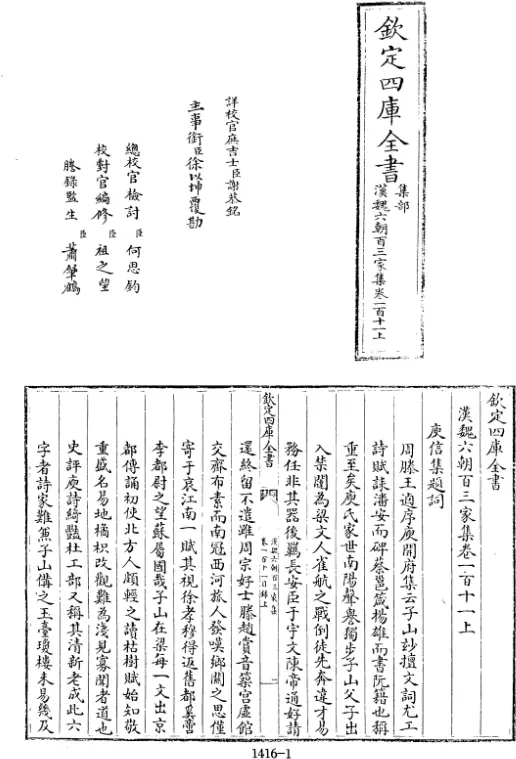 欽定四庫全書
集部
漢魏六朝百三家集卷一百十一上
詳校官庶吉士臣謝恭銘
主事銜臣徐以坤覆勘
總校官檢討臣何思鈞
校對官編修臣祖之望
謄錄監生臣蕭肇鵬
欽定四庫全書
漢魏六朝百三家集卷一百十一上
庾信集題詞
周滕王逌序庾開府集云子山妙擅文詞尤工
詩賦誄潘安而碑蔡邕箴楊雄而書阮籍也稱
重至矣庾氏家世南陽聲譽獨步子山父子出
入禁闥為梁文人雀航之戰倒徒先奔違才易
務任非其器後羈長安臣于宇文陳帝通好請
欽定四庫全書
漢魏六朝百三家集
卷一百十一目錄上
一
還終留不遣雖周宗好士滕趙賞音築宮虛館
交齊布素而南冠西河旅人發嘆鄉關之思僅
寄于哀江南一賦其視徐孝穆得返舊都奚啻
李都尉之望蘇屬國哉子山在梁每一文出京
都傳誦初使北方人頗輕之讀枯樹賦始知敬
重盛名易地橘枳改觀難為淺見寡聞者道也
史評庾詩綺豔杜工部又稱其清新老成此六
字者詩家難兼子山備之玉臺瓊樓未易幾及
1416-1